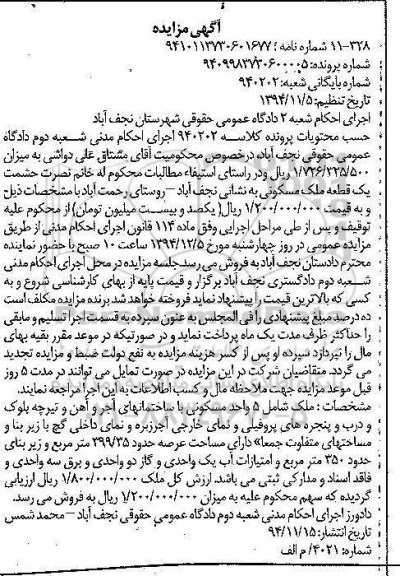 آگهی مزایده
۱۱-۳۲۸ شماره نامه : ۹۴۱۰۱۱۳۷۳۰۶۰۱۶۷۷
شماره پرونده: ۹۴۰۹۹۸۳۷۳۰۶۰۰۰۰۵
شماره بایگانی شعبه: ۹۴۰۲۰۲
تاریخ تنظیم: ۱۳۹۴/۱۱/۵
اجرای احکام شعبه ۲ دادگاه عمومی حقوقی شهرستان نجف آباد
حسب محتویات پرونده کلاسه ۹۴۰۲۰۲ اجرای احکام مدنی شعبه دوم دادگاه
عمومی حقوقی نجف آباد درخصوص محکومیت آقای مشتاق علی دواشی به میزان
۱/۷۳۶/۳۲۵/۵۰۰ ریال ودر راستای استیفاء مطالبات محکوم له خانم نصرت حشمت
یک قطعه ملک مسکونی به نشانی نجف آباد – روستای رحمت آباد با مشخصات ذیل
و به قیمت ۱/۲۰۰/۰۰۰/۰۰۰ ریال( یکصد و بیست میلیون تومان) از محکوم علیه
توقیف و پس از طی مراحل اجرایی وفق ماده ۱۱۴ قانون اجرای احکام مدنی از طریق
مزایده عمومی در روز چهارشنبه مورخ ۱۳۹۴/۱۲/۵ ساعت ۱۰ صبح با حضور نماینده
محترم دادستان نجف آباد به فروش می رسد.جلسه مزایده در محل اجرای احکام مدنی
شعبه دوم دادگستری نجف آباد برگزار و قیمت پایه از بهای کارشناسی شروع و به
کسی که بالاترین قیمت را پیشنهاد نماید فروخته خواهد شد.برنده مزایده مکلف است
ده درصد مبلغ پیشنهادی را فی المجلس به عنون سپرده به قسمت اجرا تسلیم و مابقی
را حداکثر ظرف مدت یک ماه پرداخت نماید و در صورتیکه در موعد مقرر بقیه بهای
مال را نپردازد سپرده او پس از کسر هزینه مزایده به نفع دولت ضبط و مزایده تجدید
می گردد. متقاضیان شرکت در این مزایده در صورت تمایل می توانند در مدت ۵ روز
قبل موعد مزایده جهت ملاحظه مال و کسب اطلاعات به این اجرا مراجعه نمایند.
مشخصات : ملک شامل ۵ واحد مسکونی با ساختمانهای آجر و آهن و تیرچه بلوک
و درب و پنجره های پروفیلی و نمای خارجی آجرنره و نمای داخلی گچ با زیر بنا و
مساحتهای متفاوت جمعا» دارای مساحت عرصه حدود ۳۹۹/۳۵ متر مربع و زیر بنای
حدود ۳۵۰ متر مربع و امتیازات آب یک واحدی و گاز دو واحدی و برق سه واحدی و
فاقد اسناد و مدارکی ثبتی می باشد. ارزش کل ملک ۱/۸۰۰/۰۰۰/۰۰۰ ریال ارزیابی
گردیده که سهم محکوم علیه به میزان ۱/۲۰۰/۰۰۰/۰۰۰ ریال به فروش می رسد.
دادورز اجرای احکام مدنی شعبه دوم دادگاه عمومی حقوقی نجف آباد – محمد شمس
تاریخ انتشار: ۹۴/۱۱/۱۵
شماره: ۴۰۲۱/ م الف